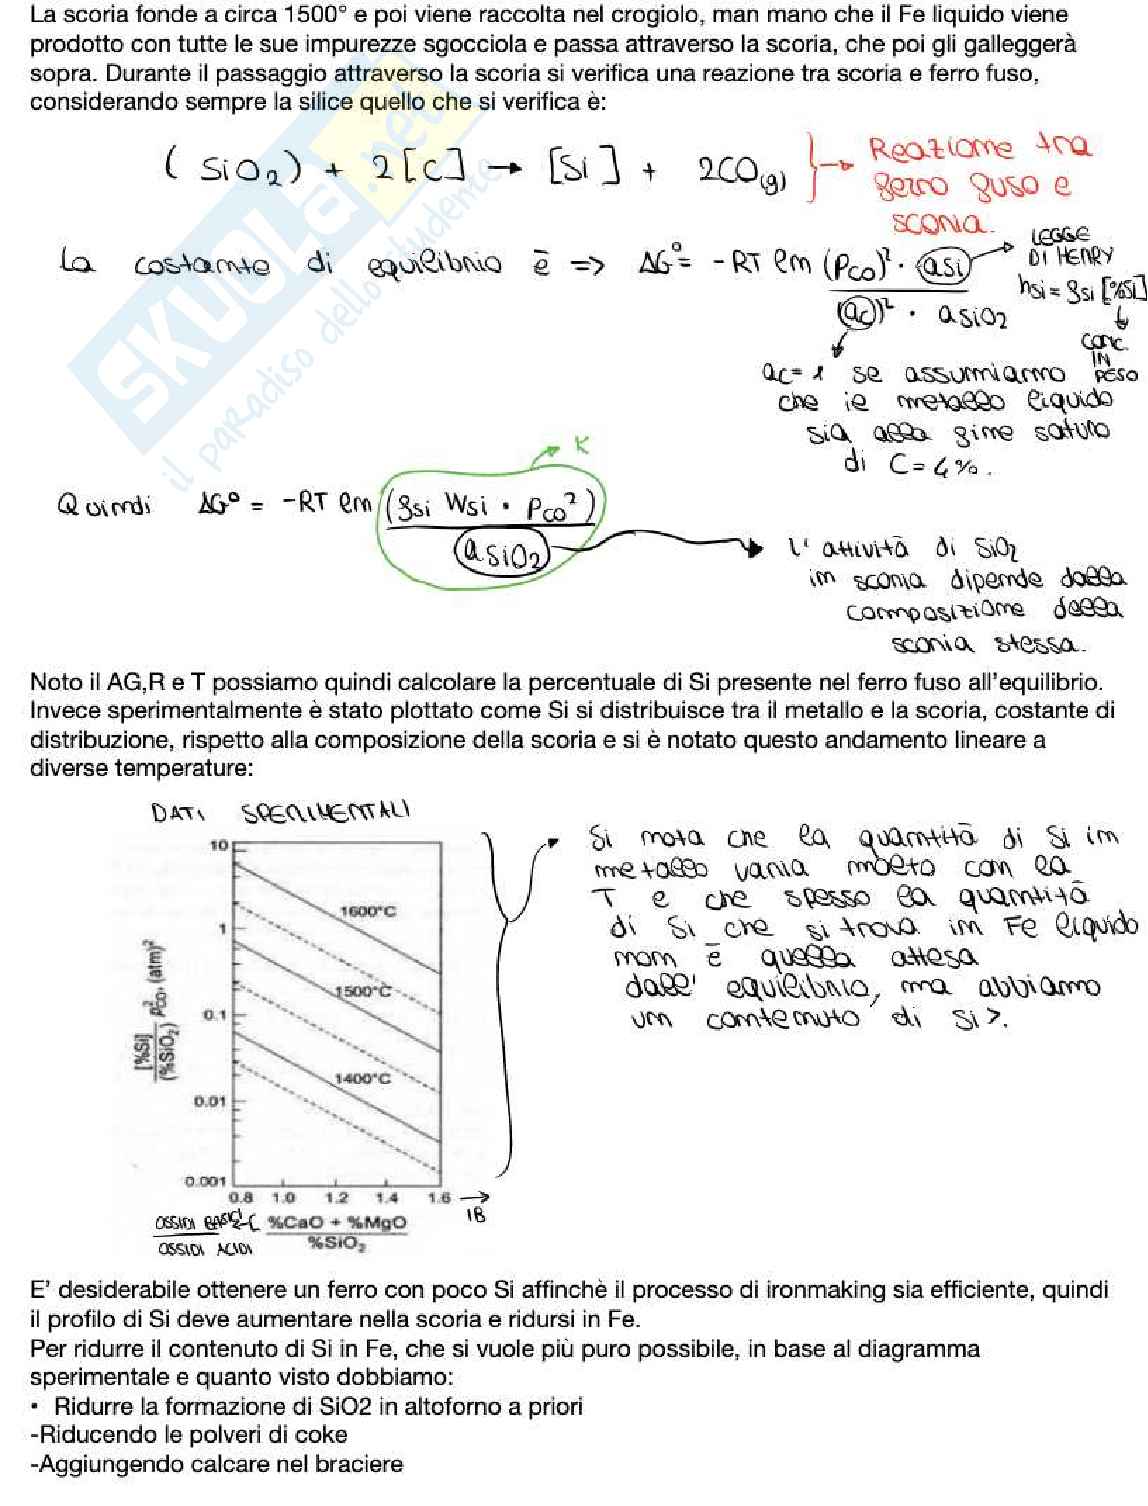 La scoria fonde a circa 1500° e poi viene raccolta nel crogiolo, man mano che il Fe liquido viene
prodotto con tutte le sue impurezze sgocciola e passa attraverso la scoria, che poi gli galleggerà
sopra. Durante il passaggio attraverso la scoria si verifica una reazione tra scoria e ferro fuso,
considerando sempre la silice quello che si verifica è:
(SiO2) + 2[C] → [Si] + 2CO(g)
Reazione tra
ferro fuso e
scoria.
La costante di equilibrio è => ΔG° = -RT ln (PCO)² · aSi / (aC)² · aSiO2
LEGGE
DI HENRY
hSi = fSi [%Si]
CONC.
IN
PESO
aC = 1 se assumiamo
che il metallo liquido
sia alla fine saturo
di C = 4%.
K
Quindi ΔG° = -RT ln (fSi WSi · PCO²) / aSiO2
L'attività di SiO2
in scoria dipende dalla
composizione della
scoria stessa.
Noto il AG,R e T possiamo quindi calcolare la percentuale di Si presente nel ferro fuso all'equilibrio.
Invece sperimentalmente è stato plottato come Si si distribuisce tra il metallo e la scoria, costante di
distribuzione, rispetto alla composizione della scoria e si è notato questo andamento lineare a
diverse temperature:
DATI SPERIMENTALI
10
1
0.1
0.01
0.001
[%Si] / (%SiO2) p²CO, (atm)²
1600°C
1500°C
1400°C
0.8 1.0 1.2 1.4 1.6
IB
OSSIDI BASICI
OSSIDI ACIDI
%CaO + %MgO
%SiO2
Si nota che la quantità di Si in
metallo varia molto con la
T e che spesso la quantità
di Si che si trova in Fe liquido
non è quella attesa
dall'equilibrio, ma abbiamo
un contenuto di Si >.
E' desiderabile ottenere un ferro con poco Si affinchè il processo di ironmaking sia efficiente, quindi
il profilo di Si deve aumentare nella scoria e ridursi in Fe.
Per ridurre il contenuto di Si in Fe, che si vuole più puro possibile, in base al diagramma
sperimentale e quanto visto dobbiamo:
• Ridurre la formazione di SiO2 in altoforno a priori
-Riducendo le polveri di coke
-Aggiungendo calcare nel braciere
SKUOLA.net
il paradiso dello studente